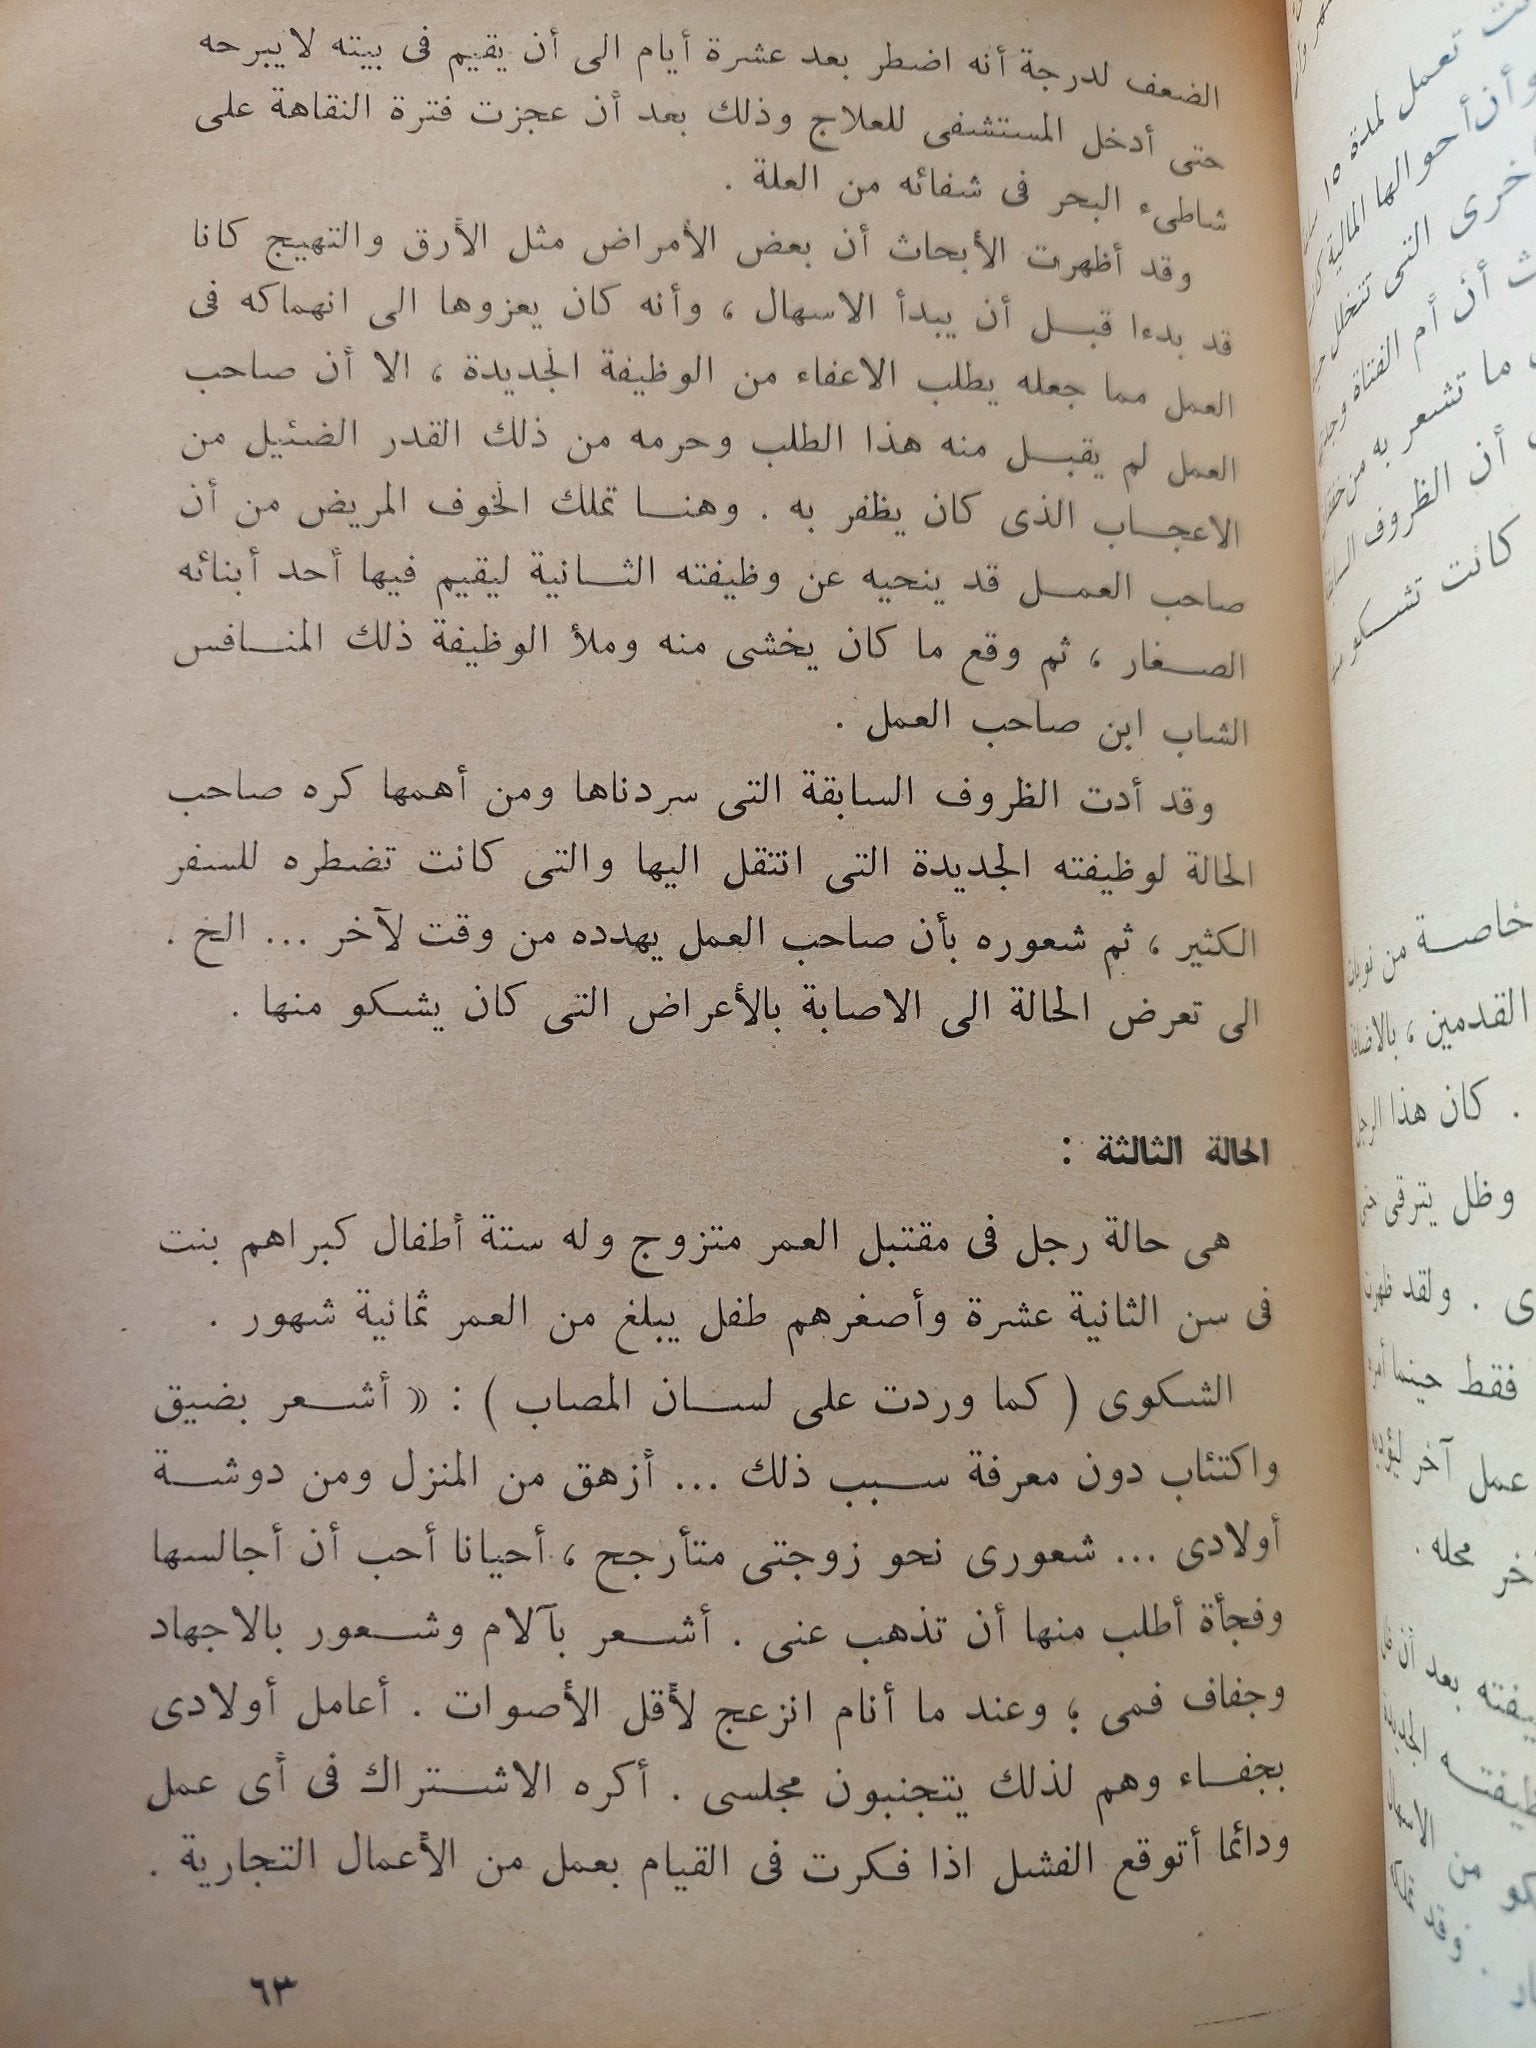 الضعف لدرجة أنه اضطر بعد عشرة أيام الى أن يقيم فى بيته لايبرحه
حتى أدخل المستشفى للعلاج وذلك بعد أن عجزت فترة النقاهة على
شاطىء البحر فى شفائه من العلة .
وقد أظهرت الأبحاث أن بعض الأمراض مثل الأرق والتهيج كانا
قد بدءا قبل أن يبدأ الاسهال ، وأنه كان يعزوها الى انهماكه فى
العمل مما جعله يطلب الاعفاء من الوظيفة الجديدة ، الا أن صاحب
العمل لم يقبل منه هذا الطلب وحرمه من ذلك القدر الضئيل من
الاعجاب الذى كان يظفر به . وهنا تملك الخوف المريض من أن
صاحب العمل قد ينحيه عن وظيفته الثانية ليقيم فيها أحد أبنائه
الصغار ، ثم وقع ما كان يخشى منه وملأ الوظيفة ذلك المنافس
الشاب ابن صاحب العمل .
وقد أدت الظروف السابقة التى سردناها ومن أهمها كره صاحب
الحالة لوظيفته الجديدة التى انتقل اليها والتى كانت تضطره للسفر
الكثير ، ثم شعوره بأن صاحب العمل يهدده من وقت لآخر ... الخ .
الى تعرض الحالة الى الاصابة بالأعراض التى كان يشكو منها .
الحالة الثالثة :
هى حالة رجل فى مقتبل العمر متزوج وله ستة أطفال كبراهم بنت
فى سن الثانية عشرة وأصغرهم طفل يبلغ من العمر ثمانية شهور .
الشكوى ( كما وردت على لسان المصاب ) : « أشعر بضيق
واكتئاب دون معرفة سبب ذلك ... أزهق من المنزل ومن دوشة
أولادى ... شعورى نحو زوجتى متأرجح ، أحيانا أحب أن أجالسها
وفجأة أطلب منها أن تذهب عنى . أشعر بآلام وشعور بالاجهاد
وجفاف فمى ؛ وعند ما أنام انزعج لأقل الأصوات . أعامل أولادى
بجفاء وهم لذلك يتجنبون مجلسى . أكره الاشتراك فى أى عمل
ودائما أتوقع الفشل اذا فكرت فى القيام بعمل من الأعمال التجارية .
٦٣
تعمل لمدة ١٥
وأن أحوالها المالية
خرى التى تتخلل
أن أم الفتاة
ما تشعر به من
أن الظروف
كانت تشكو
خاصة من نوبات
القدمين ، بالاضافة
. كان هذا الرجل
وظل يترقى حتى
. ولقد ظهرت
فقط حينما
عمل آخر
محله .
بعد أن